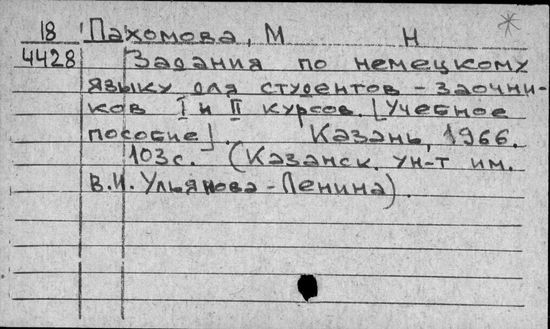 18 Пахомова, М Н
4428 Задания по немецкому
языку для студентов - заочни-
ков I и II курсов. [Учебное
пособие]. Казань, 1966.
103с. (Казанск. ун-т им.
В.И. Ульянова-Ленина).